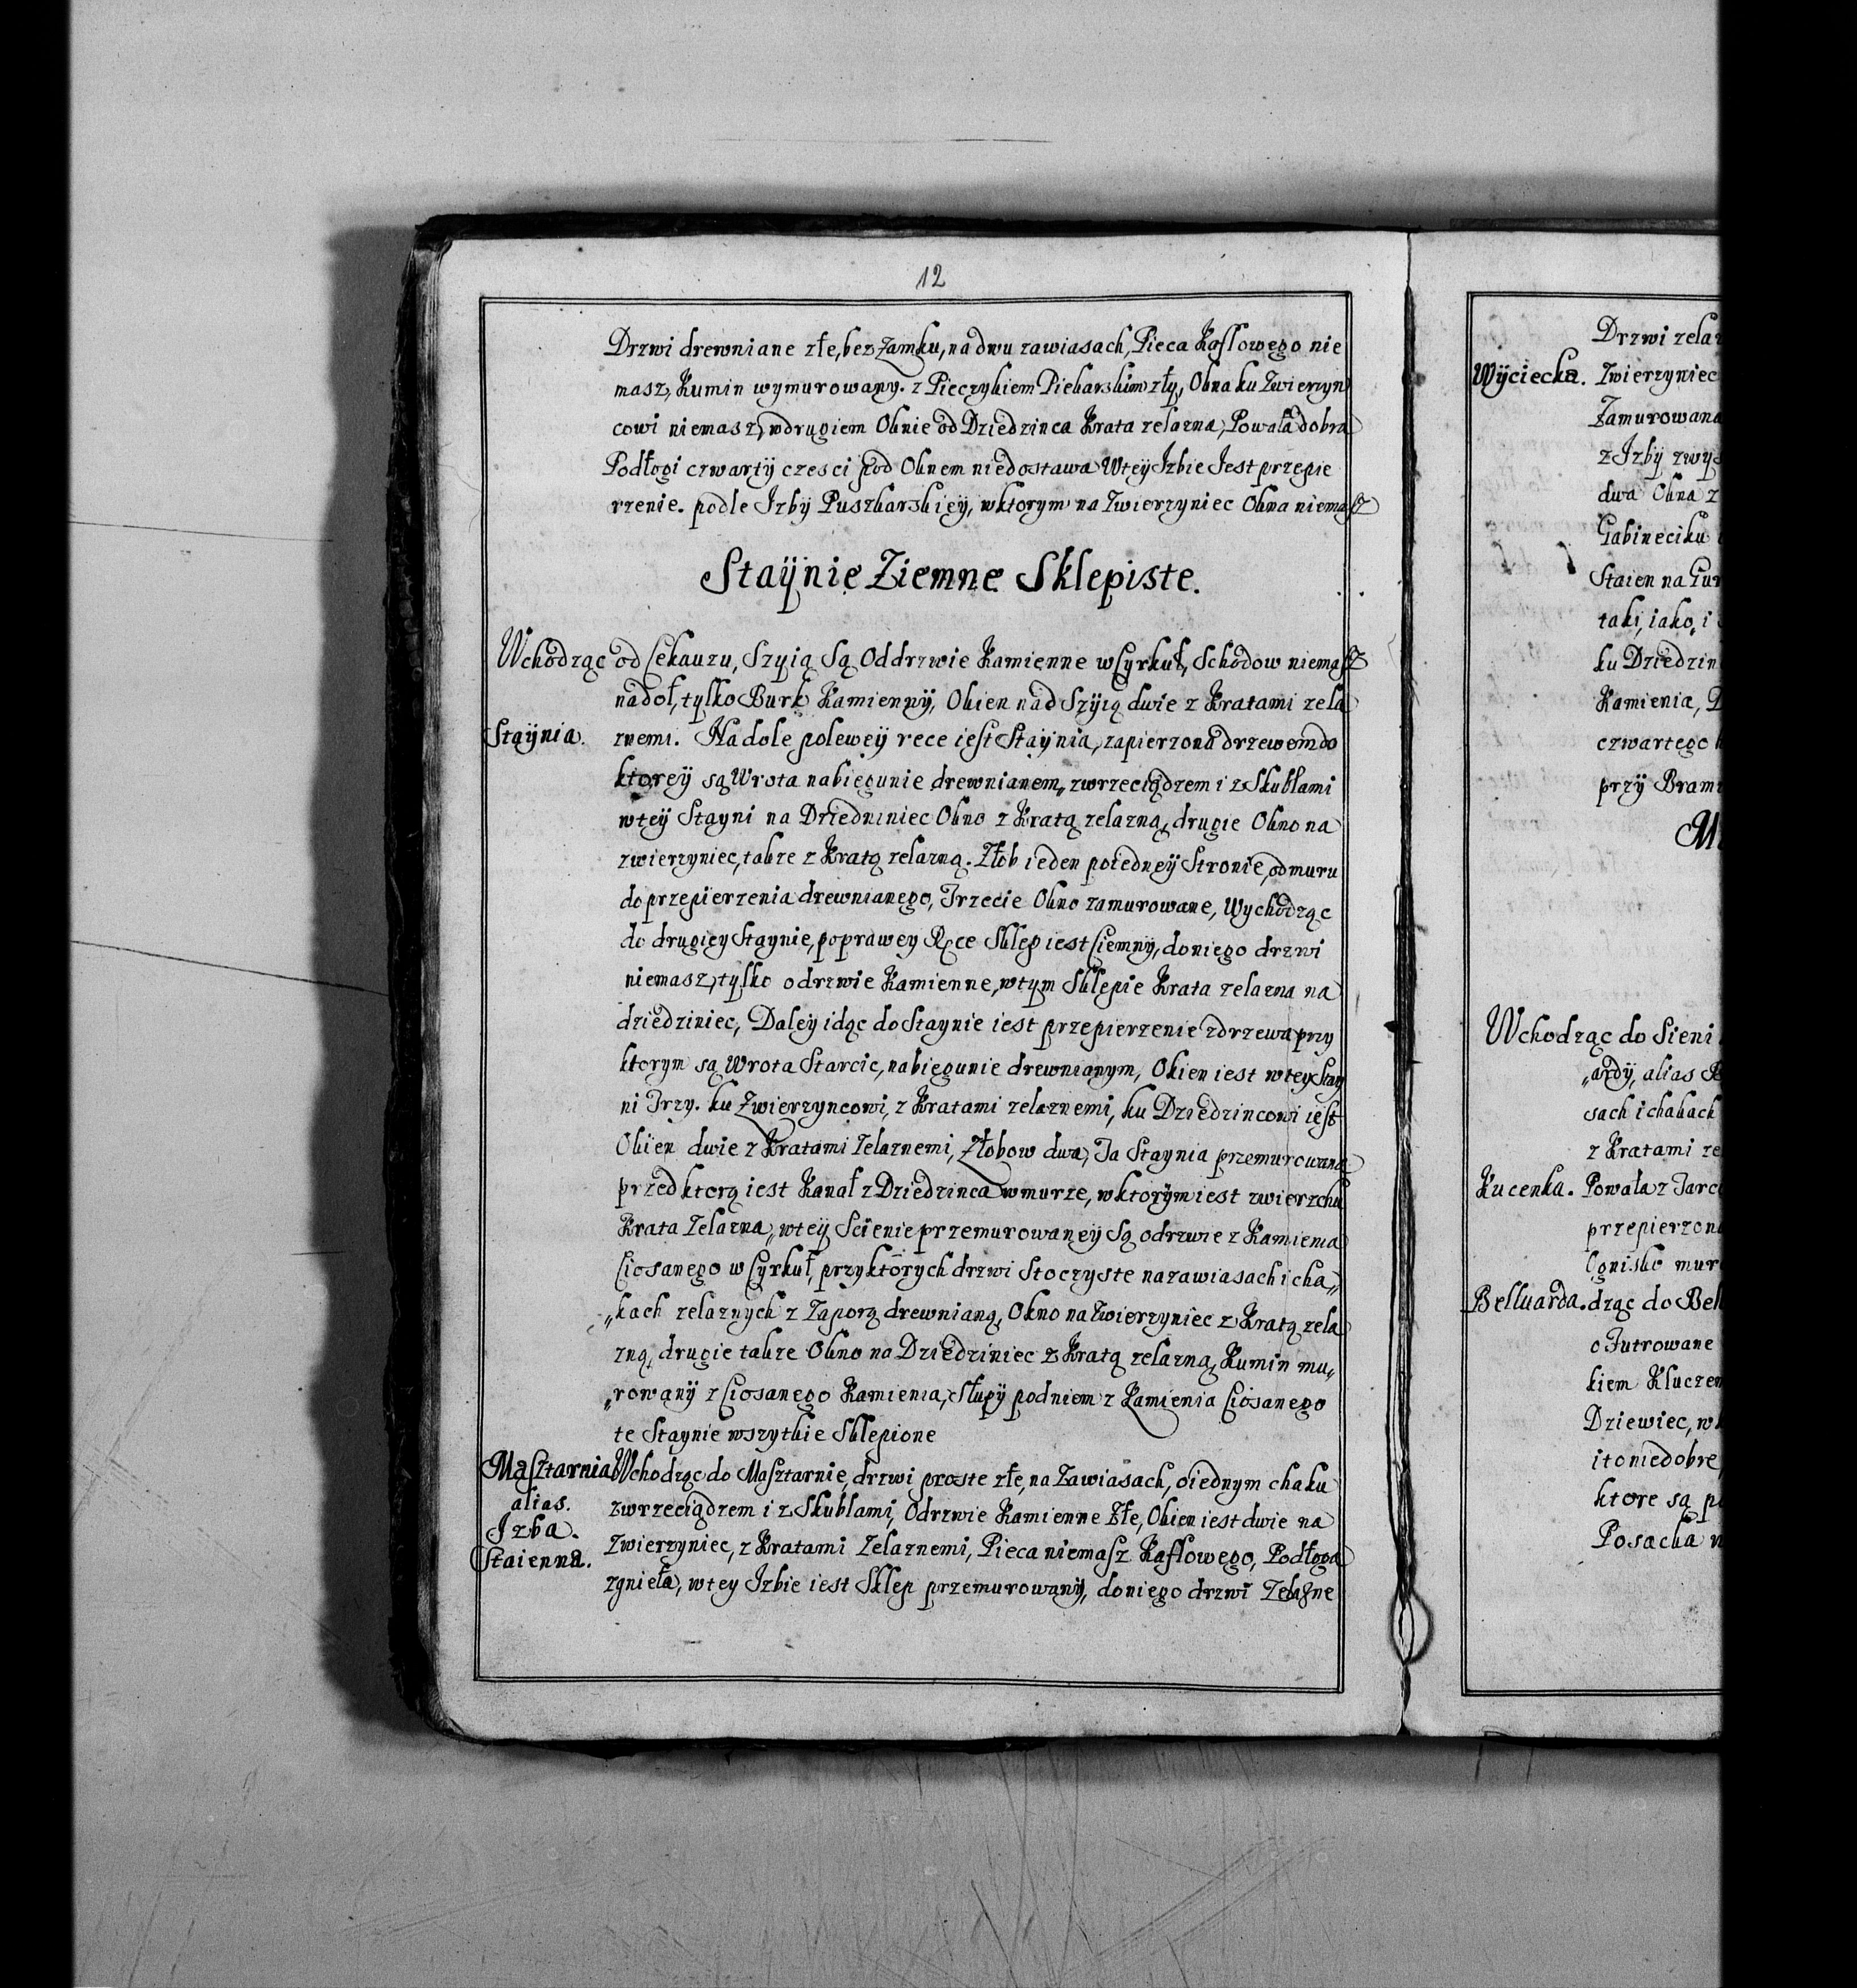 12
Drzwi drewniane złe, bez Zamku, na dwu zawiasach, Pieca Kaflowego nie
masz, Kumin wymurowany. z Pieczykiem Piekarskim zły, Okna ku Zwierzyn
cowi niemasz, w drugiem Oknie od Dziedzinca Krata zelazna, Powała dobra
Podłogi czwartÿ czesci pod Oknem niedostawa WteÿIzbie Jest przepie
rzenie. podle Izbÿ Puszkarskieÿ, wktorym na Zwierzyniec Okna niemasz
Staÿnie Ziemne Sklepiste.
Wchodząc od Cekauzu, Szyią Są Oddrzwie Kamienne w Cyrkuł, Schodow niemasz
nadoł, tylko Burk Kamiennÿ, Okien nad Szÿią dwie z Kratami zela
Staÿnia. znemi. Na dole poleweÿ rece iest Staÿnia, zapierzona drzewem do
ktoreÿ są Wrota nabiegunie drewnianem, zwrzeciądzem i z Skublami
wteÿ Stayni na Dziedniniec Okno z Kratą zelazną, drugie Okno na
zwierzyniec, takze z Kratą zelazną. Złob ieden poiedneÿ Stronie, od muru
do przepierzenia drewnianego, Trzecie Okno zamurowane, Wychodząc
do drugiey Staynie, poprawey Ręce Sklep iest Ciemnÿ, doniego drzwi
niemasz, tylko odrzwie Kamienne, wtym Sklepie Krata zelazna na
dziedziniec, Daleÿ idąc do Staynie iest przepierzenie zdrzewa przy
ktorym są Wrota Starcic, nabiegunie drewnianym, Okien iest wteyStay
ni Trzy. ku Zwierzyncowi, z Kratami zelaznemi, ku Dziedzincowi iest
Okien dwie z Kratami Zelaznemi, Złobow dwa, Ta Staynia przemurowana
przed ktorą iest Kanał z Dziedzinca w murze, w ktorÿm iest zwierzchu
Krata Zelazna, wteÿ Scienie przemurowaneÿ Są odrzwie z Kamienia
Ciosanego w Cyrkuł, przyktorych drzwi Stoczyste nazawiasach i cha„
„kach zelaznych z Zaporą drewnianą, Okno na Zwierzyniec z Kratą zela
zną, drugie takze Okno na Dziedziniec z Kratą zelazną, Kumin mu„
„rowanÿ z Ciosanego Kamienia, Słupÿ podniem z Kamienia Ciosanego
te Staynie wszytkie Sklepione
Masztarnia Wchodząc do Masztarnie, drzwi proste złe, na Zawiasach, oiednym chaku
alias. zwrzeciądzem i z Skublami, Odrzwie Kamienne Złe, Okien iest dwie na
Izba. Zwierzyniec, z Kratami Zelaznemi, Pieca niemasz Kaflowego, Podłoga
Staienna. zgnieła, wtey Izbie iest Sklep przemurowanÿ, doniego drzwi Zelazne
Drzwi zelaz
Wÿciecka. Zwierzyniec
Zamurowana
z Izbÿ
dwa Okna z
Gabineciku
Staien na
taki, iako, i
ku Dziedzin
Kamienia,
czwartego
przÿ Bram
Wchodząc do Sieni
„ardÿ, alias
sach i chakach
z Kratami ze
Kucenka. Powała z Tarc
przepierzon
Ognisko mur
Belluarda. dząc do Bel
o Futrowane
kiem Kluczem
Dziewiec, w
ito niedobre,
ktore są
Posacha